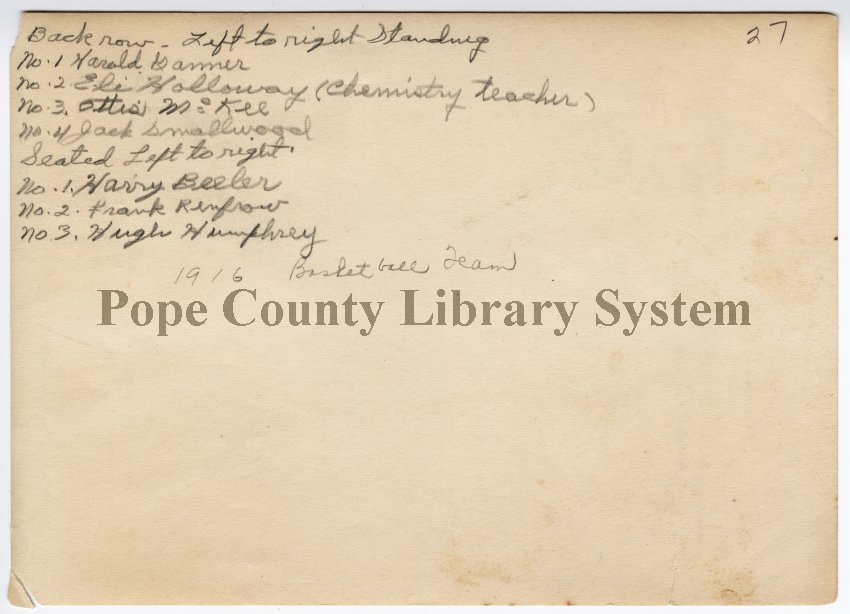 27
Back row - Left to right Standing
No. 1 Harold Danner
No. 2 Eli Holloway (Chemistry teacher)
No. 3. Ottis McKee
No. 4 Jack Smallwood
Seated Left to right.
No. 1. Harry Beeler
No. 2. Frank Renfrow
No 3. Hugh Humphrey
1916 Basket ball Team
Pope County Library System